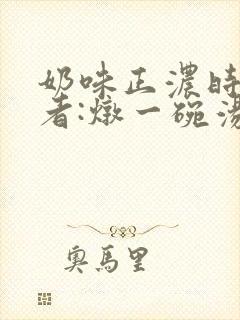 奶味正濃時
者:燉一碗湯
奧馬里